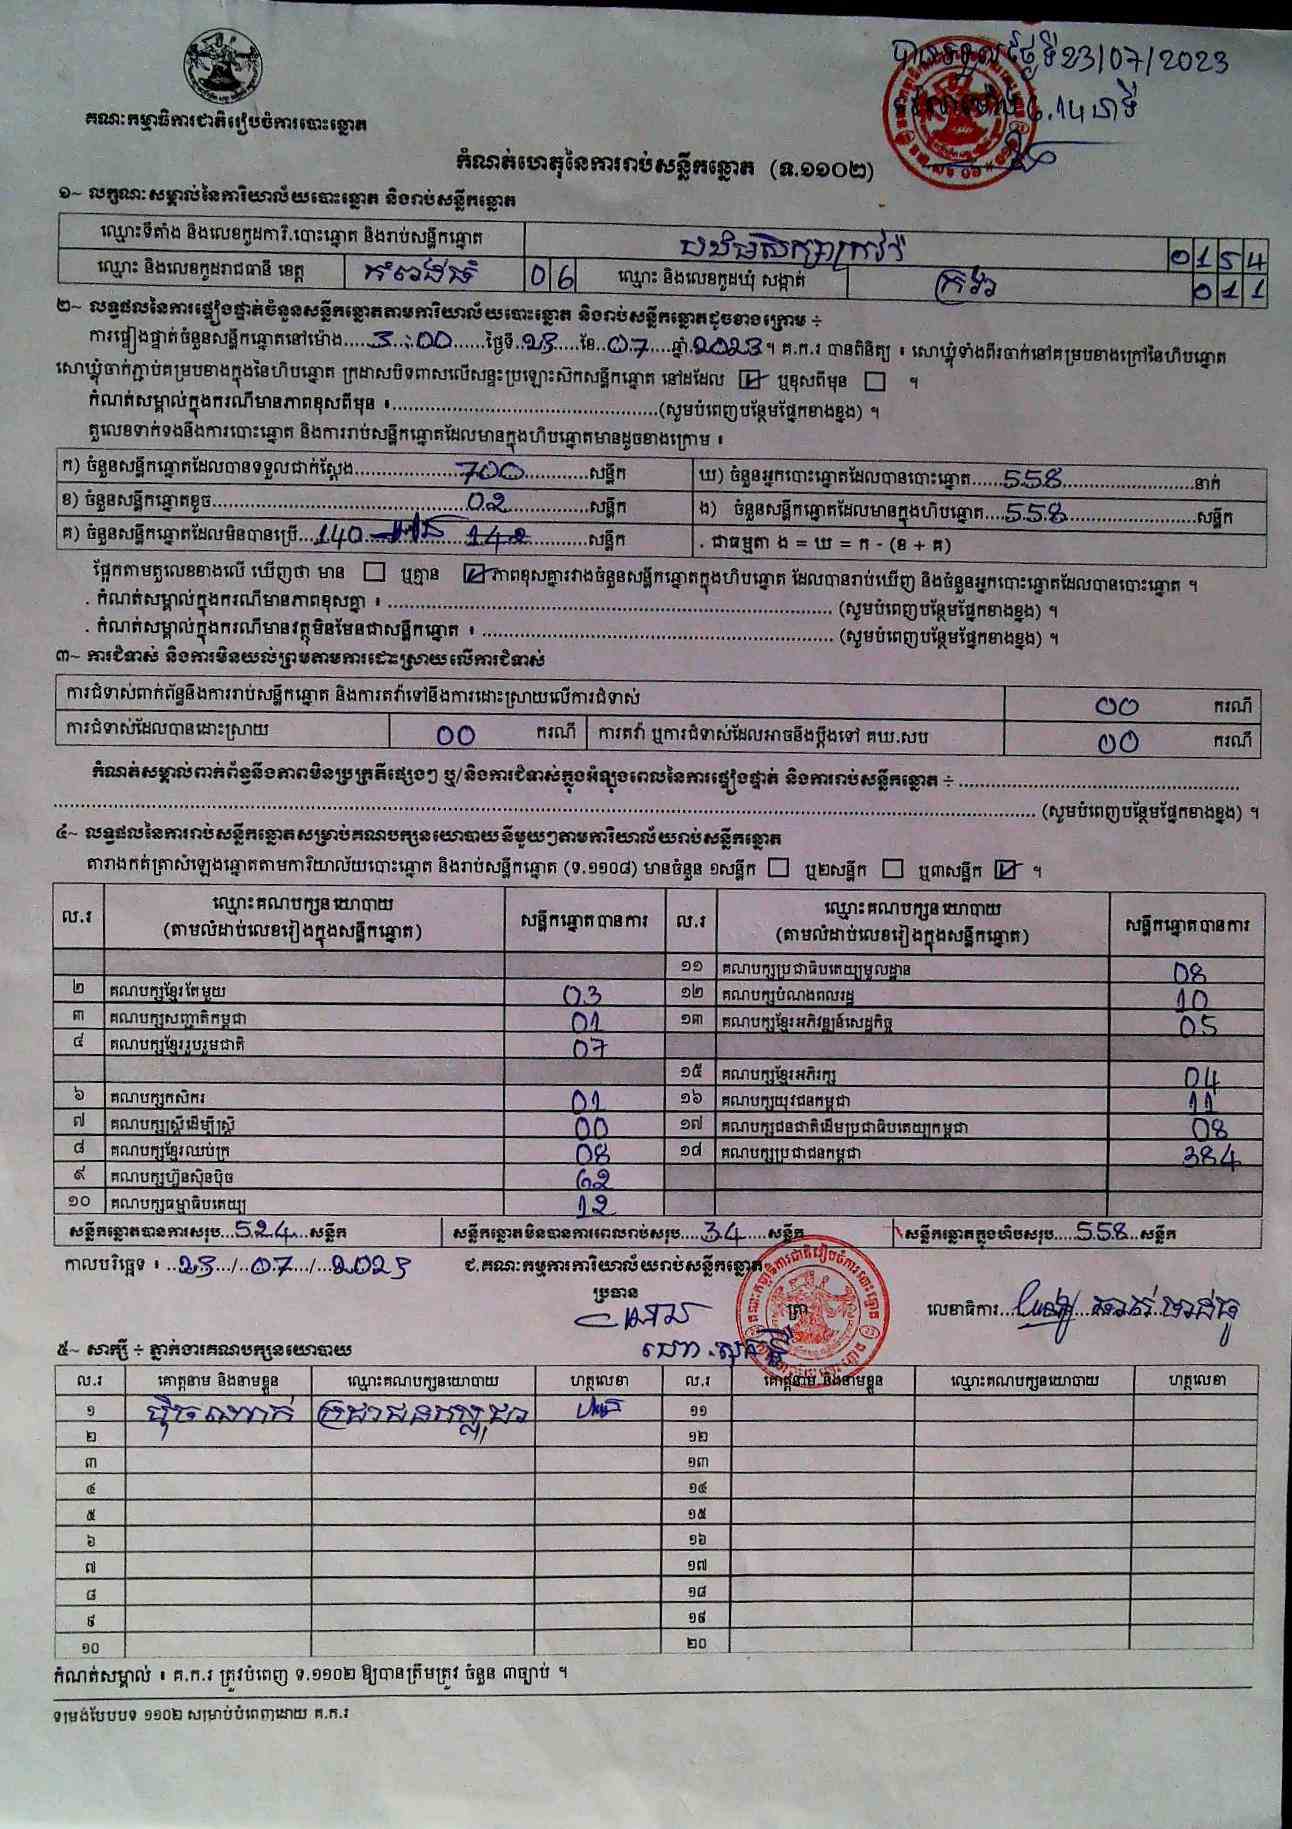 បានទទួលថ្ងៃទី23/07/2023
6.14 នាទី
គណៈកម្មាធិការជាតិរៀបចំការបោះឆ្នោត
កំណត់ហេតុនៃការរាប់សន្លឹកឆ្នោត (ទ.១១០២)
១~ លក្ខណៈសម្គាល់នៃការិយាល័យបោះឆ្នោត និងរាប់សន្លឹកឆ្នោត
ឈ្មោះទីតាំង និងលេខកូដការិ.បោះឆ្នោត និងរាប់សន្លឹកឆ្នោត 0154
ឈ្មោះ និងលេខកូដរាជធានី ខេត្ត កំពង់ធំ 06 ឈ្មោះ និងលេខកូដឃុំ សង្កាត់ ក្រវ៉ា 011
២~ លទ្ធផលនៃការផ្ទៀងផ្ទាត់ចំនួនសន្លឹកឆ្នោតតាមការិយាល័យបោះឆ្នោត និងរាប់សន្លឹកឆ្នោតដូចខាងក្រោម ÷
ការផ្ទៀងផ្ទាត់ចំនួនសន្លឹកឆ្នោតនៅម៉ោង....3:00......ថ្ងៃទី..23...ខែ..07....ឆ្នាំ.2023។ គ.ក.រ បានពិនិត្យ ៖ សោឃ្នុំទាំងពីរចាក់នៅគម្របខាងក្រៅនៃហិបឆ្នោត
សោឃ្នុំចាក់ភ្ជាប់គម្របខាងក្នុងនៃហិបឆ្នោត ក្រដាសបិទពាសលើសន្ទះប្រឡោះស៊កសន្លឹកឆ្នោត នៅដដែល ☑ ឬខុសពីមុន ☐ ។
កំណត់សម្គាល់ក្នុងករណីមានភាពខុសពីមុន ៖..................................................(សូមបំពេញបន្ថែមផ្នែកខាងខ្នង) ។
តួលេខទាក់ទងនឹងការបោះឆ្នោត និងការរាប់សន្លឹកឆ្នោតដែលមានក្នុងហិបឆ្នោតមានដូចខាងក្រោម ៖
ក) ចំនួនសន្លឹកឆ្នោតដែលបានទទួលជាក់ស្តែង....................700............សន្លឹក ឃ) ចំនួនអ្នកបោះឆ្នោតដែលបានបោះឆ្នោត......558.........................នាក់
ខ) ចំនួនសន្លឹកឆ្នោតខូច..................................................02..................សន្លឹក ង) ចំនួនសន្លឹកឆ្នោតដែលមានក្នុងហិបឆ្នោត...558.........................សន្លឹក
គ) ចំនួនសន្លឹកឆ្នោតដែលមិនបានប្រើ...140.......... 142............សន្លឹក . ជាធម្មតា ង = ឃ = ក - (ខ + គ)
ផ្អែកតាមតួលេខខាងលើ ឃើញថា មាន ☐ ឬគ្មាន ☑ ភាពខុសគ្នារវាងចំនួនសន្លឹកឆ្នោតក្នុងហិបឆ្នោត ដែលបានរាប់ឃើញ និងចំនួនអ្នកបោះឆ្នោតដែលបានបោះឆ្នោត ។
. កំណត់សម្គាល់ក្នុងករណីមានភាពខុសគ្នា ៖ .................................................................................. (សូមបំពេញបន្ថែមផ្នែកខាងខ្នង) ។
. កំណត់សម្គាល់ក្នុងករណីមានវត្ថុមិនមែនជាសន្លឹកឆ្នោត ៖ ................................................................ (សូមបំពេញបន្ថែមផ្នែកខាងខ្នង) ។
៣~ ការជំទាស់ និងការមិនយល់ព្រមតាមការដោះស្រាយលើការជំទាស់
ការជំទាស់ពាក់ព័ន្ធនឹងការរាប់សន្លឹកឆ្នោត និងការតវ៉ាទៅនឹងការដោះស្រាយលើការជំទាស់ 00 ករណី
ការជំទាស់ដែលបានដោះស្រាយ 00 ករណី ការតវ៉ា ឬការជំទាស់ដែលអាចនឹងប្តឹងទៅ គឃ.សប 00 ករណី
កំណត់សម្គាល់ពាក់ព័ន្ធនឹងភាពមិនប្រក្រតីផ្សេងៗ ឬ/និងការជំទាស់ក្នុងអំឡុងពេលនៃការផ្ទៀងផ្ទាត់ និងការរាប់សន្លឹកឆ្នោត ÷ ....................................................
.................................................................................................................. (សូមបំពេញបន្ថែមផ្នែកខាងខ្នង) ។
៤~ លទ្ធផលនៃការរាប់សន្លឹកឆ្នោតសម្រាប់គណបក្សនយោបាយនីមួយៗតាមការិយាល័យរាប់សន្លឹកឆ្នោត
តារាងកត់ត្រាសំឡេងឆ្នោតតាមការិយាល័យបោះឆ្នោត និងរាប់សន្លឹកឆ្នោត (ទ.១១០៨) មានចំនួន ១សន្លឹក ☐ ឬ២សន្លឹក ☐ ឬ៣សន្លឹក ☑ ។
ល.រ ឈ្មោះគណបក្សនយោបាយ (តាមលំដាប់លេខរៀងក្នុងសន្លឹកឆ្នោត) សន្លឹកឆ្នោតបានការ ល.រ ឈ្មោះគណបក្សនយោបាយ (តាមលំដាប់លេខរៀងក្នុងសន្លឹកឆ្នោត) សន្លឹកឆ្នោតបានការ
១១ គណបក្សប្រជាធិបតេយ្យមូលដ្ឋាន 08
២ គណបក្សខ្មែរតែមួយ 03 ១២ គណបក្សបំណងពលរដ្ឋ 10
៣ គណបក្សសញ្ជាតិកម្ពុជា 01 ១៣ គណបក្សខ្មែរអភិវឌ្ឍន៍សេដ្ឋកិច្ច 05
៤ គណបក្សខ្មែររួបរួមជាតិ 07
១៥ គណបក្សខ្មែរអភិរក្ស 04
៦ គណបក្សកសិករ 01 ១៦ គណបក្សយុវជនកម្ពុជា 11
៧ គណបក្សស្ត្រីដើម្បីស្ត្រី 00 ១៧ គណបក្សជនជាតិដើមប្រជាធិបតេយ្យកម្ពុជា 08
៨ គណបក្សខ្មែរឈប់ក្រ 08 ១៨ គណបក្សប្រជាជនកម្ពុជា 384
៩ គណបក្សហ៊្វុនស៊ិនប៉ិច 62
១០ គណបក្សធម្មាធិបតេយ្យ 12
សន្លឹកឆ្នោតបានការសរុប...524...សន្លឹក សន្លឹកឆ្នោតមិនបានការពេលរាប់សរុប....34....សន្លឹក សន្លឹកឆ្នោតក្នុងហិបសរុប.....558...សន្លឹក
កាលបរិច្ឆេទ ៖ ..23.../...07.../...2023 ជ.គណៈកម្មការការិយាល័យរាប់សន្លឹកឆ្នោត
ប្រធាន ត្រា លេខាធិការ
៥~ សាក្សី ÷ ភ្នាក់ងារគណបក្សនយោបាយ
ល.រ គោត្តនាម និងនាមខ្លួន ឈ្មោះគណបក្សនយោបាយ ហត្ថលេខា ល.រ គោត្តនាម និងនាមខ្លួន ឈ្មោះគណបក្សនយោបាយ ហត្ថលេខា
១ ប្រជាជនកម្ពុជា ១១
២ ១២
៣ ១៣
៤ ១៤
៥ ១៥
៦ ១៦
៧ ១៧
៨ ១៨
៩ ១៩
១០ ២០
កំណត់សម្គាល់ ៖ គ.ក.រ ត្រូវបំពេញ ទ.១១០២ ឱ្យបានត្រឹមត្រូវ ចំនួន ៣ច្បាប់ ។
ទម្រង់បែបបទ ១១០២ សម្រាប់បំពេញដោយ គ.ក.រ